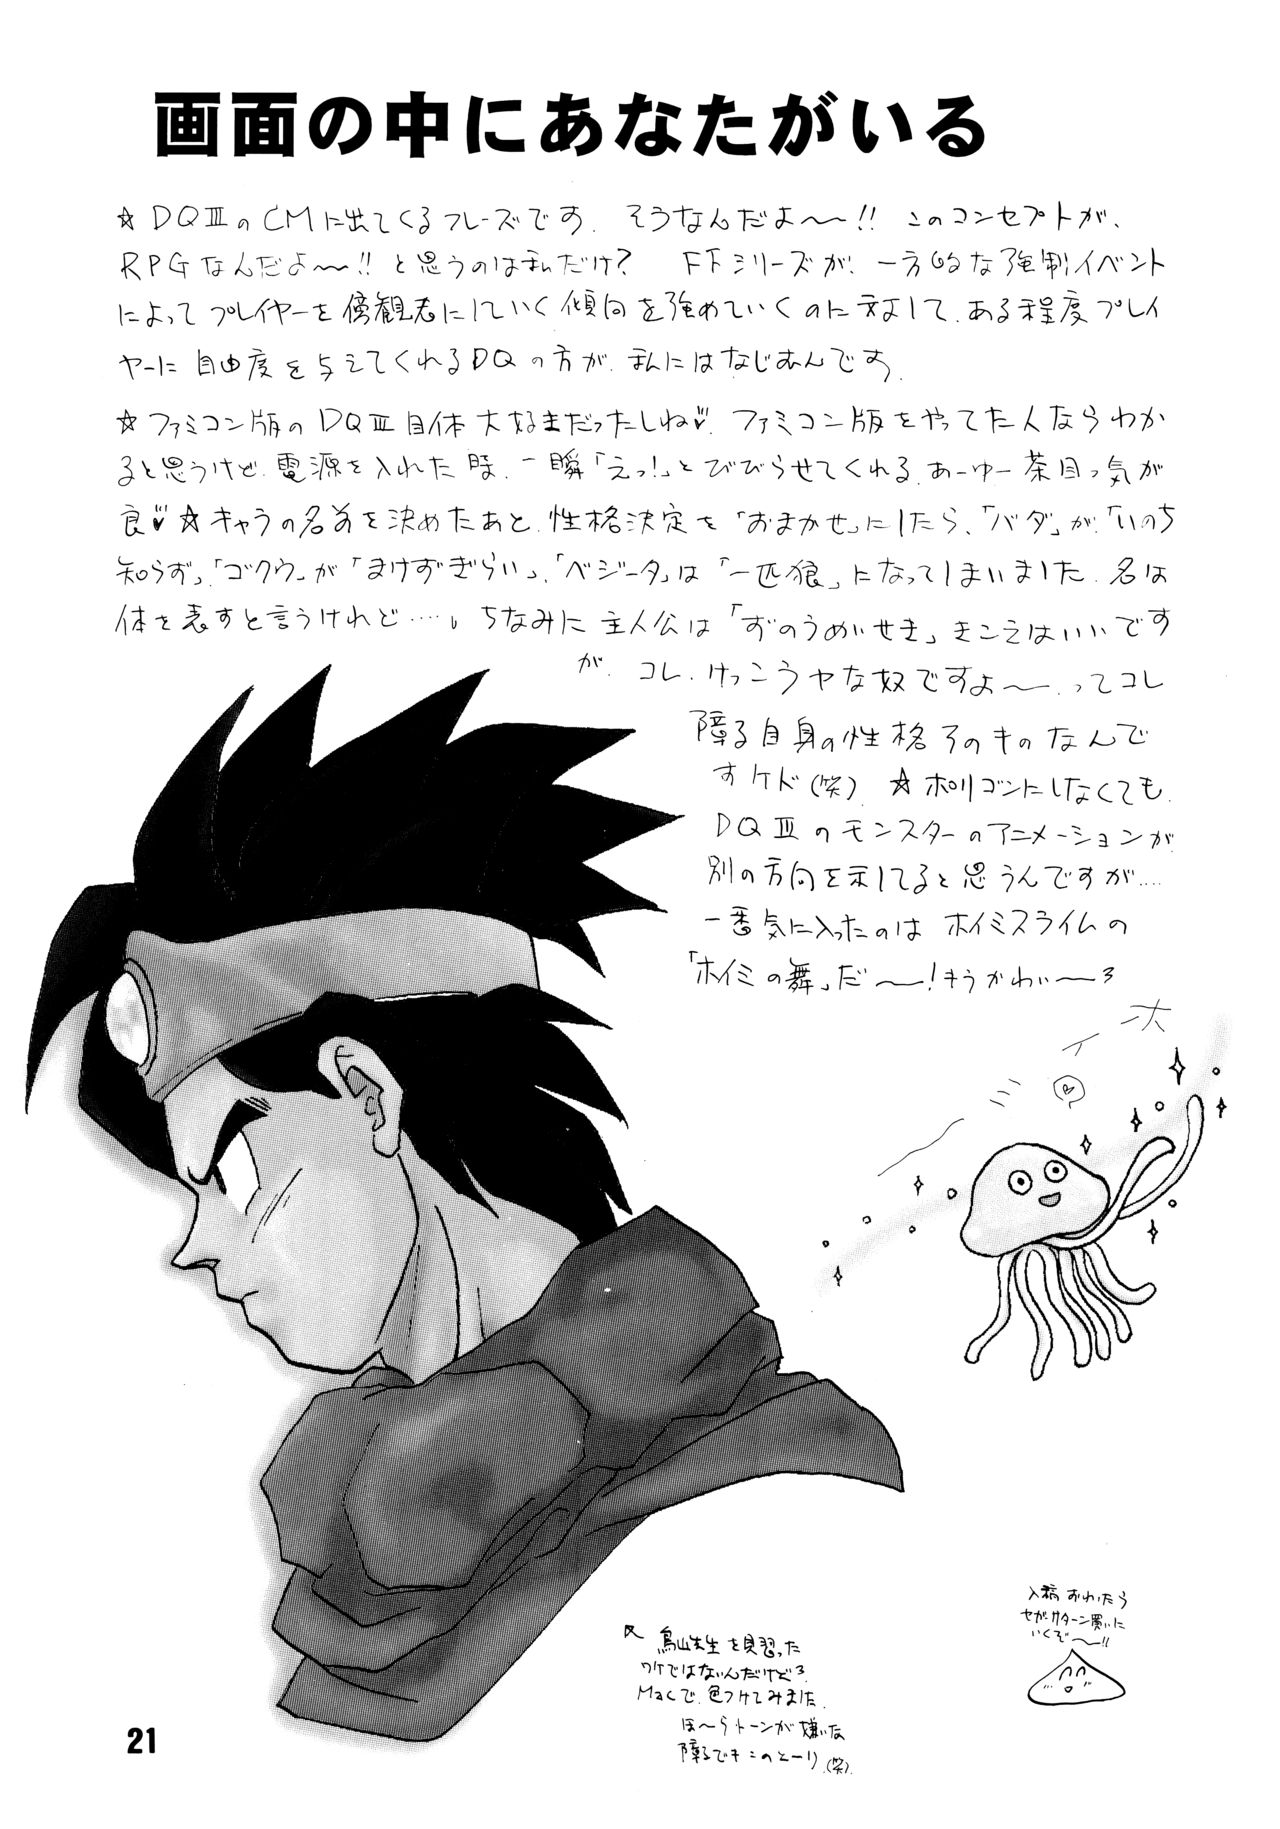 画面の中にあなたがいる
☆DQⅢのCMに出てくるフレーズです。そうなんだよ〜〜!! このコンセプトが、
RPGなんだよ〜〜!! と思うのは私だけ? FFシリーズが、一方的な強制イベント
によってプレイヤーを傍観者にしていく傾向を強めていくのに対して、ある程度プレイ
ヤーに自由度を与えてくれるDQの方が、私にはなじむんです。
☆ファミコン版のDQⅢ自体大好きだったしね♡ ファミコン版をやってた人ならわか
ると思うけど、電源を入れた時、一瞬「えっ!」とびびらせてくれる、あーゆー茶目っ気が
良♡ ☆キャラの名前を決めたあと、性格決定を「おまかせ」にしたら、「バダ」が、「いのち
知らず」、「ゴクウ」が「まけずぎらい」、「ベジータ」は「一匹狼」になってしまいました。名は
体を表すと言うけれど‥‥。ちなみに主人公は「ずのうめいせき」きこえはいいです
が、コレ、けっこうヤな奴ですよ〜〜、ってコレ
障る自身の性格そのものなんで
すケド(笑)。☆ポリゴンにしなくても、
DQⅢのモンスターのアニメーションが、
別の方向を示してると思うんですが‥‥
一番気に入ったのはホイミスライムの
「ホイミの舞」だ〜〜!もうかわいい〜〜
ホ
イ
ミ
入稿おわったら
セガ・サターン買いに
いくぞ〜〜!!
鳥山先生を見習った
ワケではないんだけど、
Macで、色つけてみました。
ほ〜らトーンが嫌いな
障るでもこのとーり(笑)。
21